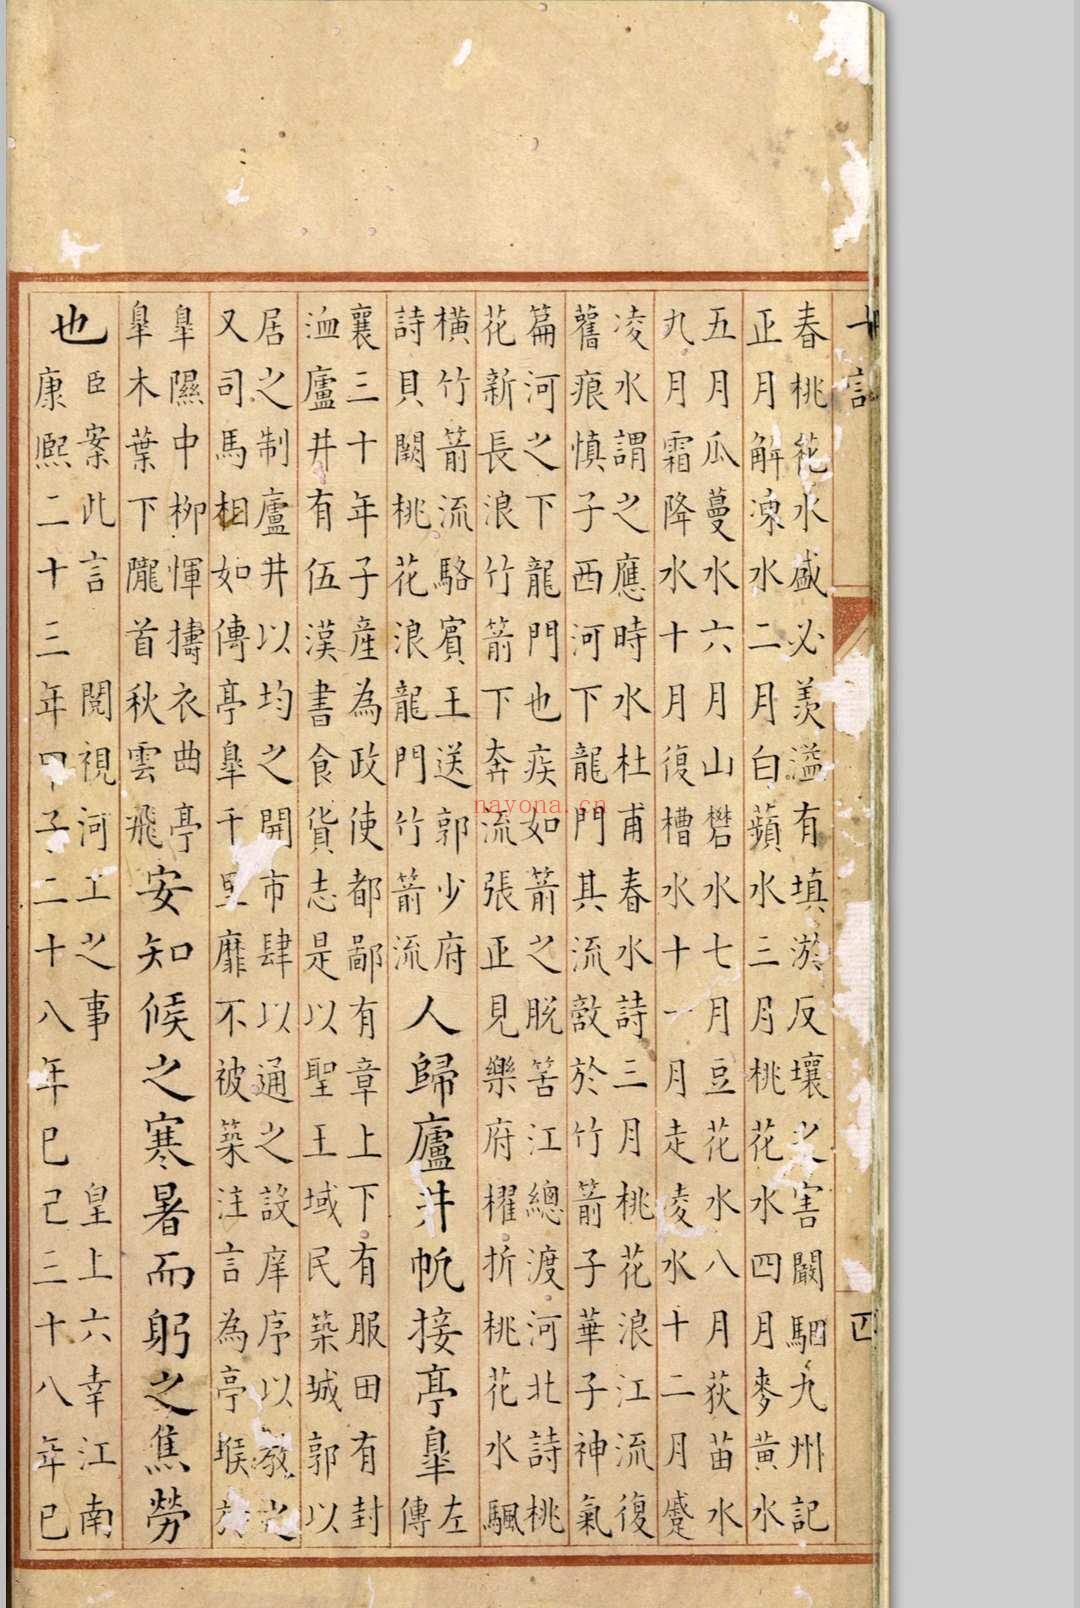 春桃花水盛必羨溢有填淤反壤之害闞駰九州記
正月解凍水二月白蘋水三月桃花水四月麥黃水
五月瓜蔓水六月山礬水七月豆花水八月荻苗水
九月霜降水十月復槽水十一月走凌水十二月蹙
凌水謂之應時水杜甫春水詩三月桃花浪江流復
舊痕慎子西河下龍門其流敿於竹箭子華子神氣
篇河之下龍門也疾如箭之脫筈江總渡河北詩桃
花新長浪竹箭下奔流張正見樂府櫂折桃花水颿
橫竹箭流駱賓王送郭少府
詩貝闕桃花浪龍門竹箭流
人歸廬井㠶接亭臯
左
傳
襄三十年子產為政使都鄙有章上下有服田有封
洫廬井有伍漢書食貨志是以聖王域民築城郭以
居之制廬井以均之開市肆以通之設庠序以教之
又司馬相如傳亭臯千里靡不被築注言為亭堠於
臯隰中柳惲擣衣曲亭
臯木葉下隴首秋雲飛
安知候之寒暑而躬之焦勞
也
臣案此言 閱視河工之事 皇上六幸江南
康熙二十三年甲子二十八年己巳三十八年己
nayona.cn